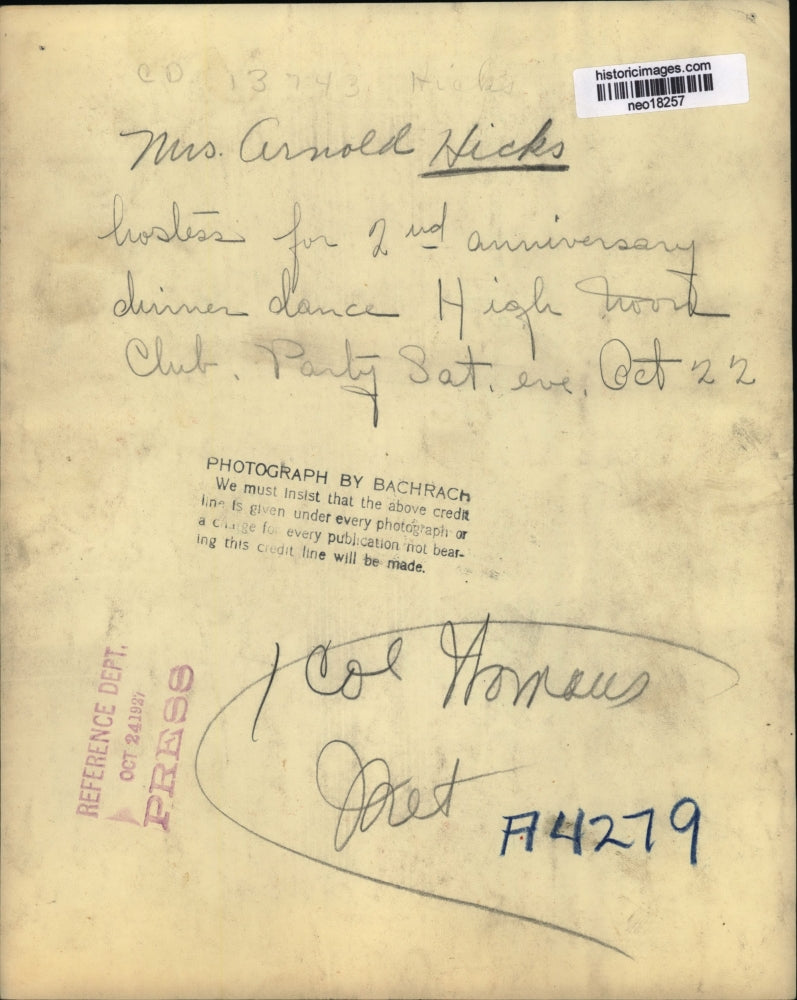 historicimages.com
neo18257
CD 13743 Hicks
Mrs. Arnold Hicks
hostess for 2nd anniversary
dinner dance High Noon
Club. Party Sat. eve. Oct 22
PHOTOGRAPH BY BACHRACH
We must insist that the above credit
line is given under every photograph or
a charge for every publication not bear-
ing this credit line will be made.
REFERENCE DEPT.
OCT 24 1927
PRESS
1 Col Womans
A4279